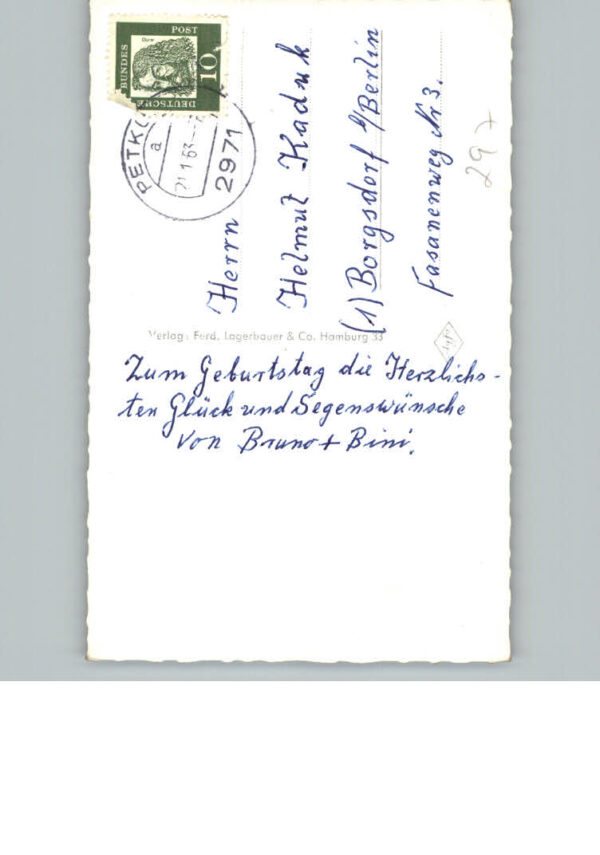 DEUTSCHE BUNDES POST
Dürer
10
2971
a
Herrn
Helmut Kaduk
(1) Borgsdorf b/Berlin
Fasanenweg Nr 3.
297
Verlag: Ferd. Lagerbauer & Co. Hamburg 33
Zum Geburtstag die Herzlichs-
ten Glück und Segenswünsche
von Bruno + Bini.